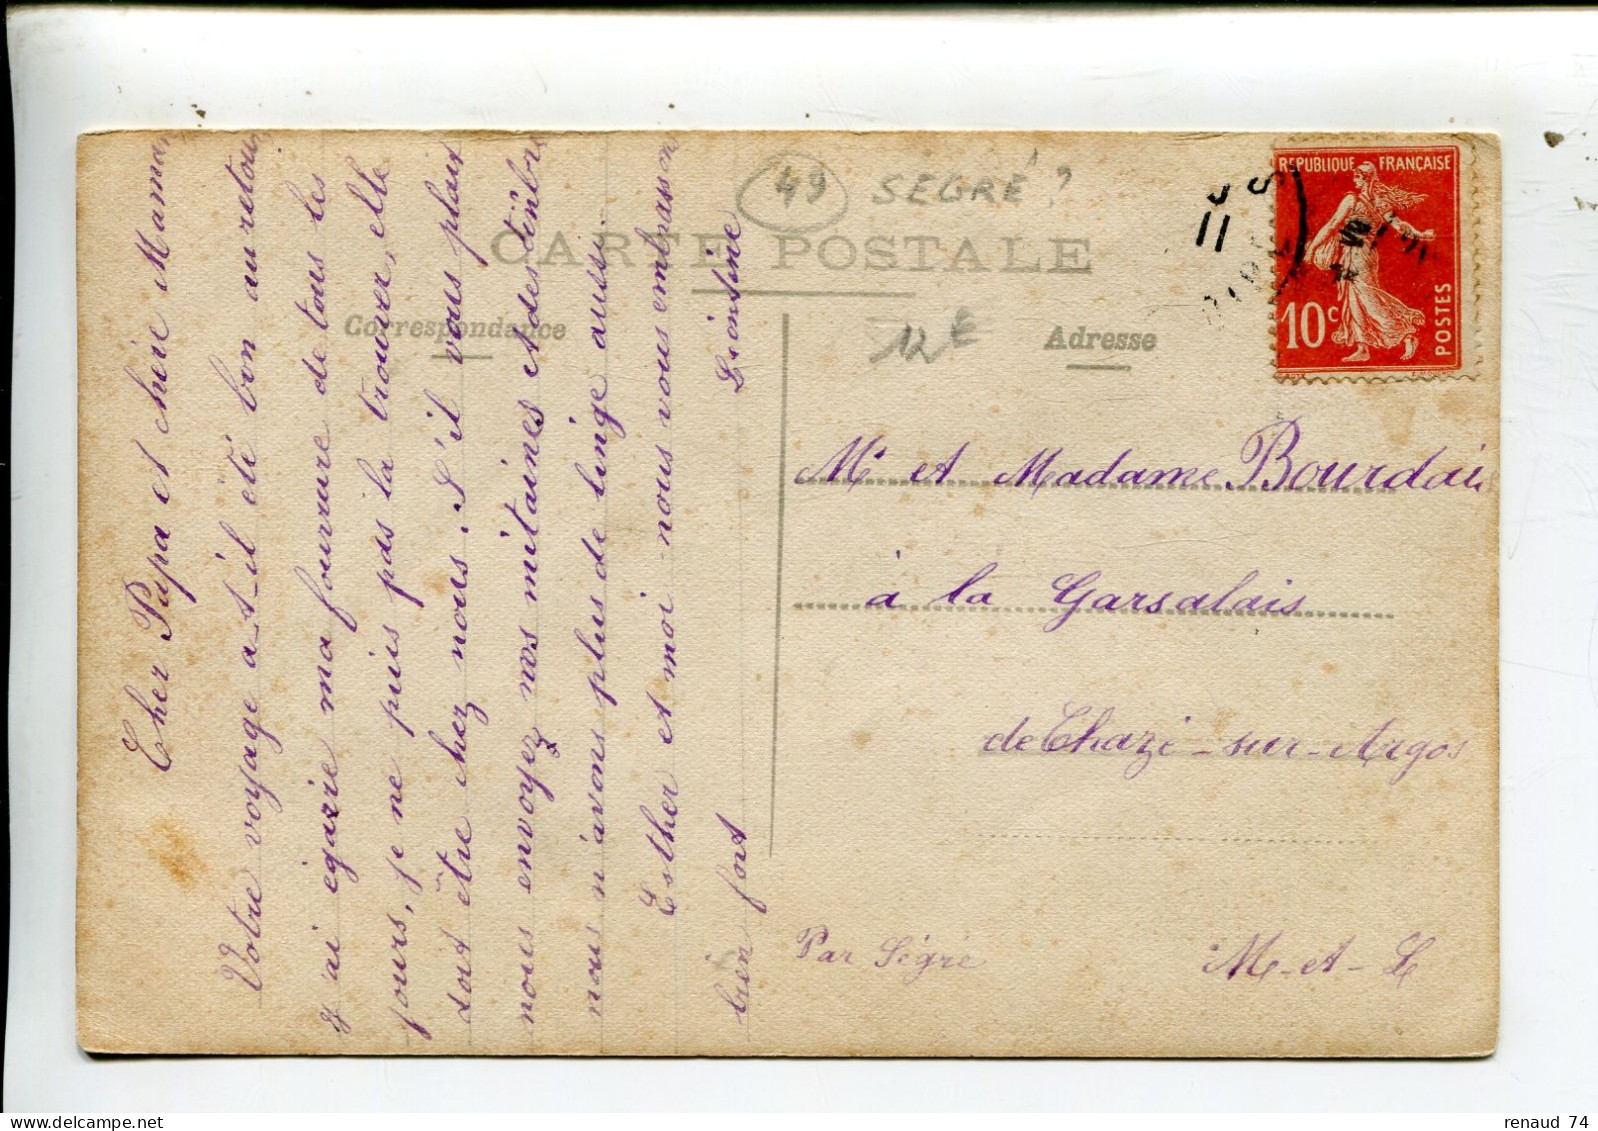 49 SEGRÉ ?
CARTE POSTALE
Correspondance
12 €
Adresse
RÉPUBLIQUE FRANÇAISE
10c
POSTES
11
Cher Papa et chère Maman
Votre voyage a-t-il été bon au retour
j'ai égarée ma fourrure de tous les
jours, je ne puis pas la trouver, elle
doit être chez nous. S'il vous plait
nous envoyez nos mitaines et des timbres
nous n'avons plus de linge aussi.
Esther et moi nous vous embrassons
bien fort Léontine
Mr et Madame Bourdais
à la Garsalais
de Chazé-sur-Argos
Par Ségré M-et-L
renaud 74